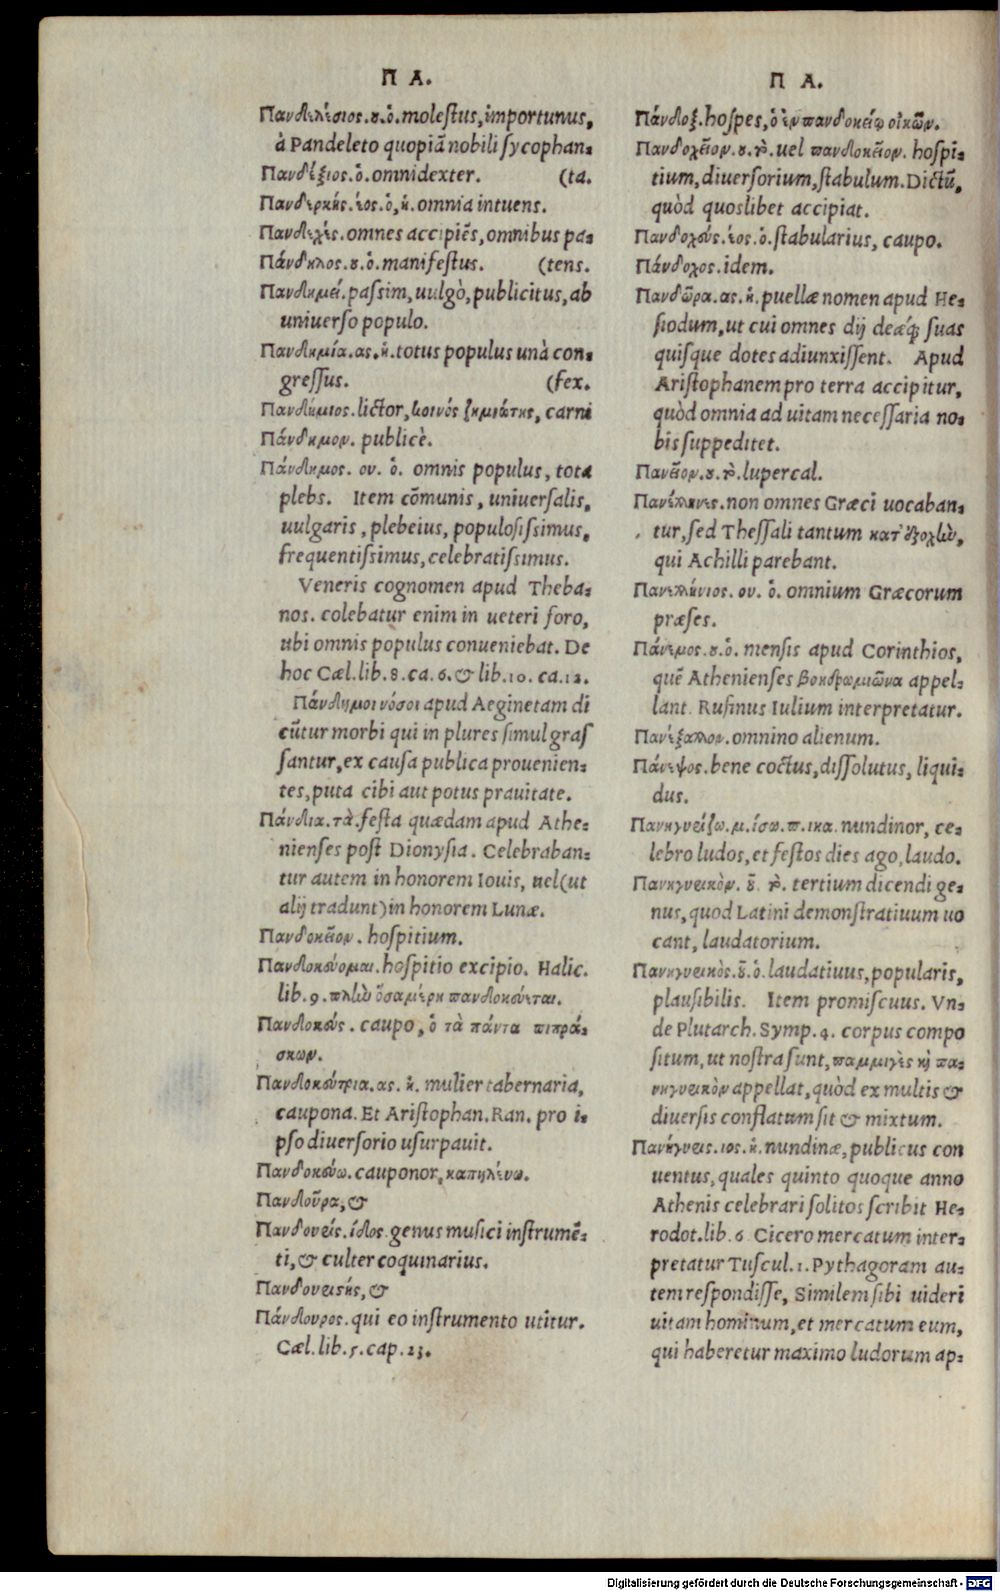 Π Α.
Πανδελέσιος.ου.ὁ.moleſtus,importunus,
à Pandeleto quopiã nobili ſycophan-
Πανδέξιος.ὁ.omnidexter. (ta.
Πανδερκής.έος.ὁ,ἡ.omnia intuens.
Πανδεχὲς.omnes accipiẽs,omnibus pa-
Πάνδηλος.ου.ὁ.manifeſtus. (tens.
Πανδημεί.paſsim,uulgò,publicitus,ab
uniuerſo populo.
Πανδημία.ας.ἡ.totus populus unà con-
greſſus. (fex.
Πανδήμιος.lictor,κοινός ζημιώτης,carni
Πάνδημον. publicè.
Πάνδημος. ου. ὁ. omnis populus, tota
plebs. Item cõmunis, uniuerſalis,
uulgaris, plebeius, populoſiſsimus,
frequentiſsimus, celebratiſsimus.
Veneris cognomen apud Theba-
nos. colebatur enim in ueteri foro,
ubi omnis populus conueniebat. De
hoc Cæl.lib.8.ca.6.& lib.10.ca.12.
Πάνδημοι νόσοι apud Aeginetam di
cũtur morbi qui in plures ſimul graſ
ſantur,ex cauſa publica prouenien-
tes,puta cibi aut potus prauitate.
Πάνδια.τὰ.feſta quædam apud Athe-
nienſes poſt Dionyſia. Celebraban-
tur autem in honorem Iouis, uel(ut
alij tradunt)in honorem Lunæ.
Πανδοκεῖον. hoſpitium.
Πανδοκεύομαι.hoſpitio excipio. Halic.
lib.9.πλὴν ὅσα μέρη πανδοκεύεται.
Πανδοκεύς. caupo, ὁ τὰ πάντα πιπρά-
σκων.
Πανδοκεύτρια.ας. ἡ. mulier tabernaria,
caupona. Et Ariſtophan.Ran. pro i-
pſo diuerſorio uſurpauit.
Πανδοκεύω.cauponor,καπηλεύω.
Πανδοῦρα,&
Πανδουρίς.ίδος.genus muſici inſtrumẽ-
ti,& culter coquinarius.
Πανδουριστής,&
Πάνδουρος.qui eo inſtrumento utitur.
Cæl.lib.5.cap.23.
Π Α.
Πάνδοξ.hoſpes,ὁ ἐν πανδοκείῳ οἰκῶν.
Πανδοχεῖον.ου.τὸ.uel πανδοκεῖον. hoſpi-
tium,diuerſorium,ſtabulum.Dictũ,
quòd quoslibet accipiat.
Πανδοχεύς.έος.ὁ.ſtabularius, caupo.
Πάνδοχος.idem.
Πανδῶρα.ας.ἡ.puellæ nomen apud He-
ſiodum,ut cui omnes dij deæq́; ſuas
quiſque dotes adiunxiſſent. Apud
Ariſtophanem pro terra accipitur,
quòd omnia ad uitam neceſſaria no-
bis ſuppeditet.
Πανεῖον.ου.τὸ.lupercal.
Πανέλληνες.non omnes Græci uocaban-
tur,ſed Theſſali tantum κατ' ἐξοχὴν,
qui Achilli parebant.
Πανελλήνιος. ου. ὁ. omnium Græcorum
præſes.
Πάνεμος.ου.ὁ. menſis apud Corinthios,
quẽ Athenienſes βοηδρομιῶνα appel-
lant. Ruſinus Iulium interpretatur.
Πανέξαλλον.omnino alienum.
Πάνεψος.bene coctus,diſſolutus, liqui-
dus.
Πανηγυρίζω.μ.ίσω.π.ικα. nundinor, ce-
lebro ludos,et feſtos dies ago,laudo.
Πανηγυρικὸν. οῦ. τὸ. tertium dicendi ge-
nus,quod Latini demonſtratiuum uo
cant, laudatorium.
Πανηγυρικὸς.οῦ.ὁ.laudatiuus,popularis,
plauſibilis. Item promiſcuus. Vn-
de Plutarch.Symp.4. corpus compo
ſitum,ut noſtra ſunt,παμμιγὲς καὶ πα-
νηγυρικὸν appellat,quòd ex multis &
diuerſis conflatum ſit & mixtum.
Πανήγυρις.ιος.ἡ.nundinæ,publicus con
uentus,quales quinto quoque anno
Athenis celebrari ſolitos ſcribit He-
rodot.lib.6 Cicero mercatum inter-
pretatur Tuſcul.1.Pythagoram au-
tem reſpondiſſe, Similem ſibi uideri
uitam hominum,et mercatum eum,
qui haberetur maximo ludorum ap-
Digitalisierung gefördert durch die Deutsche Forschungsgemeinschaft - DFG